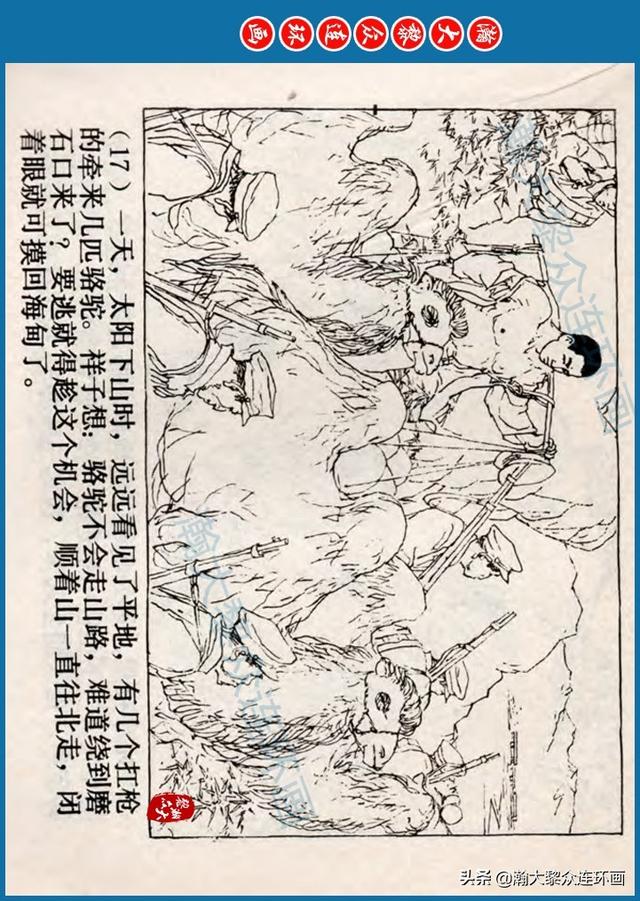 瀚大黎众连环画
(17)一天，太阳下山时，远远看见了平地，有几个扛枪
的牵来几匹骆驼。祥子想：骆驼不会走山路，难道绕到磨
石口来了？要逃就得趁这个机会，顺着山一直往北走，闭
着眼就可摸回海甸了。
瀚大黎众连环画
瀚大黎众连环画
瀚大黎众
头条 @瀚大黎众连环画